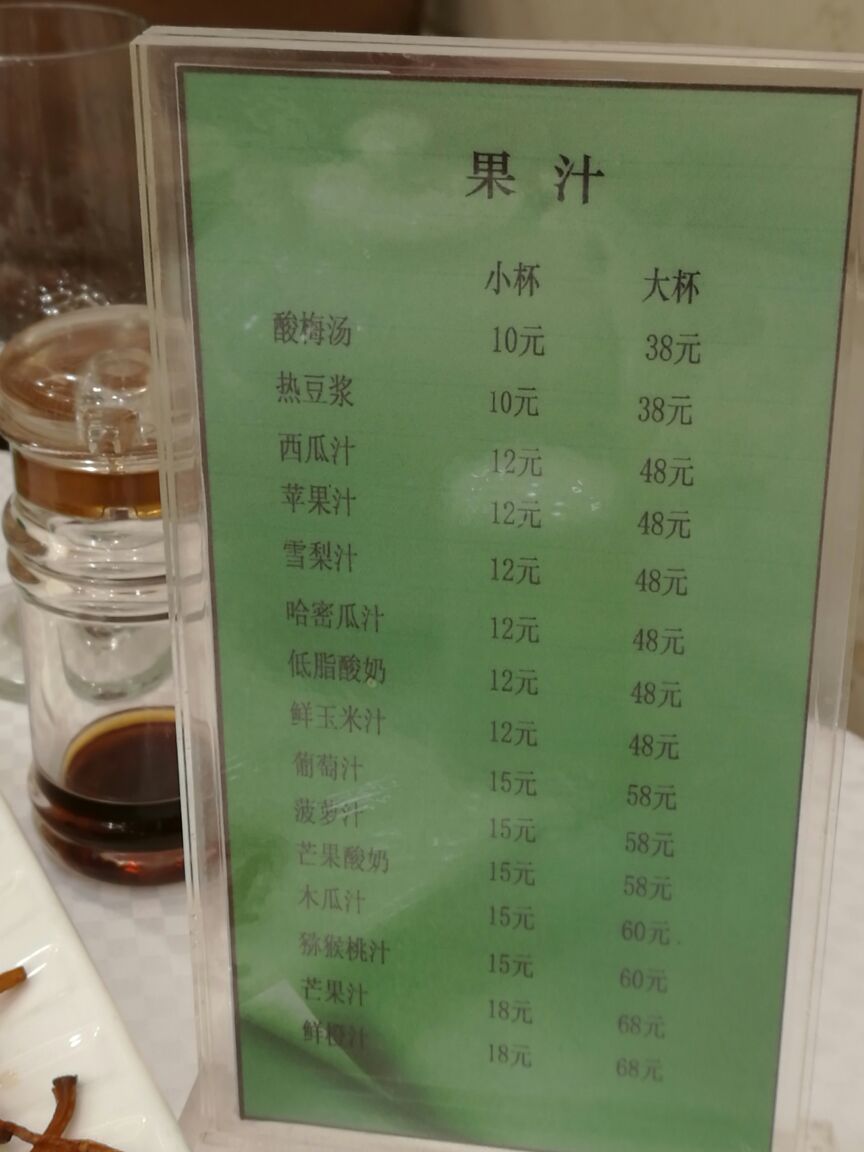 果汁
小杯 大杯
酸梅汤 10元 38元
热豆浆 10元 38元
西瓜汁 12元 48元
苹果汁 12元 48元
雪梨汁 12元 48元
哈密瓜汁 12元 48元
低脂酸奶 12元 48元
鲜玉米汁 12元 48元
葡萄汁 15元 58元
菠萝汁 15元 58元
芒果酸奶 15元 58元
木瓜汁 15元 60元
猕猴桃汁 15元 60元
芒果汁 18元 68元
鲜橙汁 18元 68元